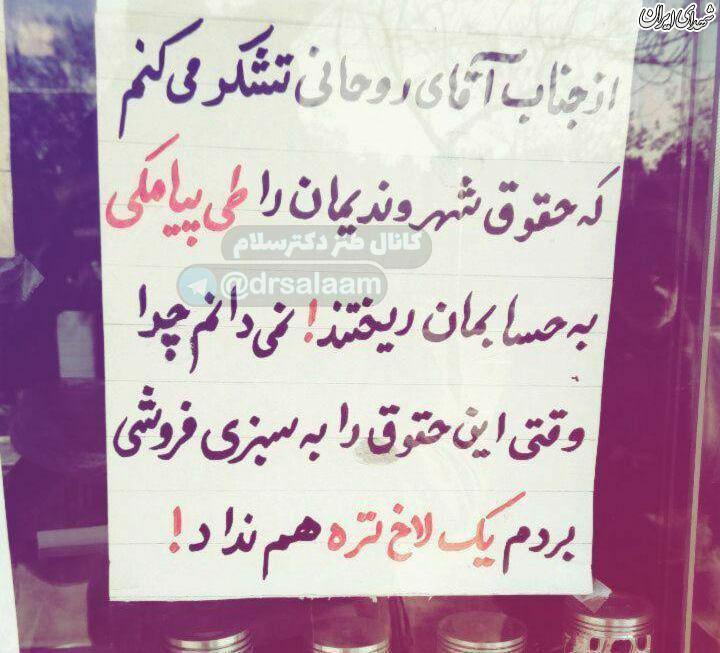 شهدای ایران
از جناب آقای روحانی تشکر می کنم
که حقوق شهروندیمان را طی پیامکی
کانال طنز دکترسلام
@drsalaam
به حسابمان ریختند! نمی دانم چرا
وقتی این حقوق را به سبزی فروشی
بردم یک لاخ تره هم نداد!